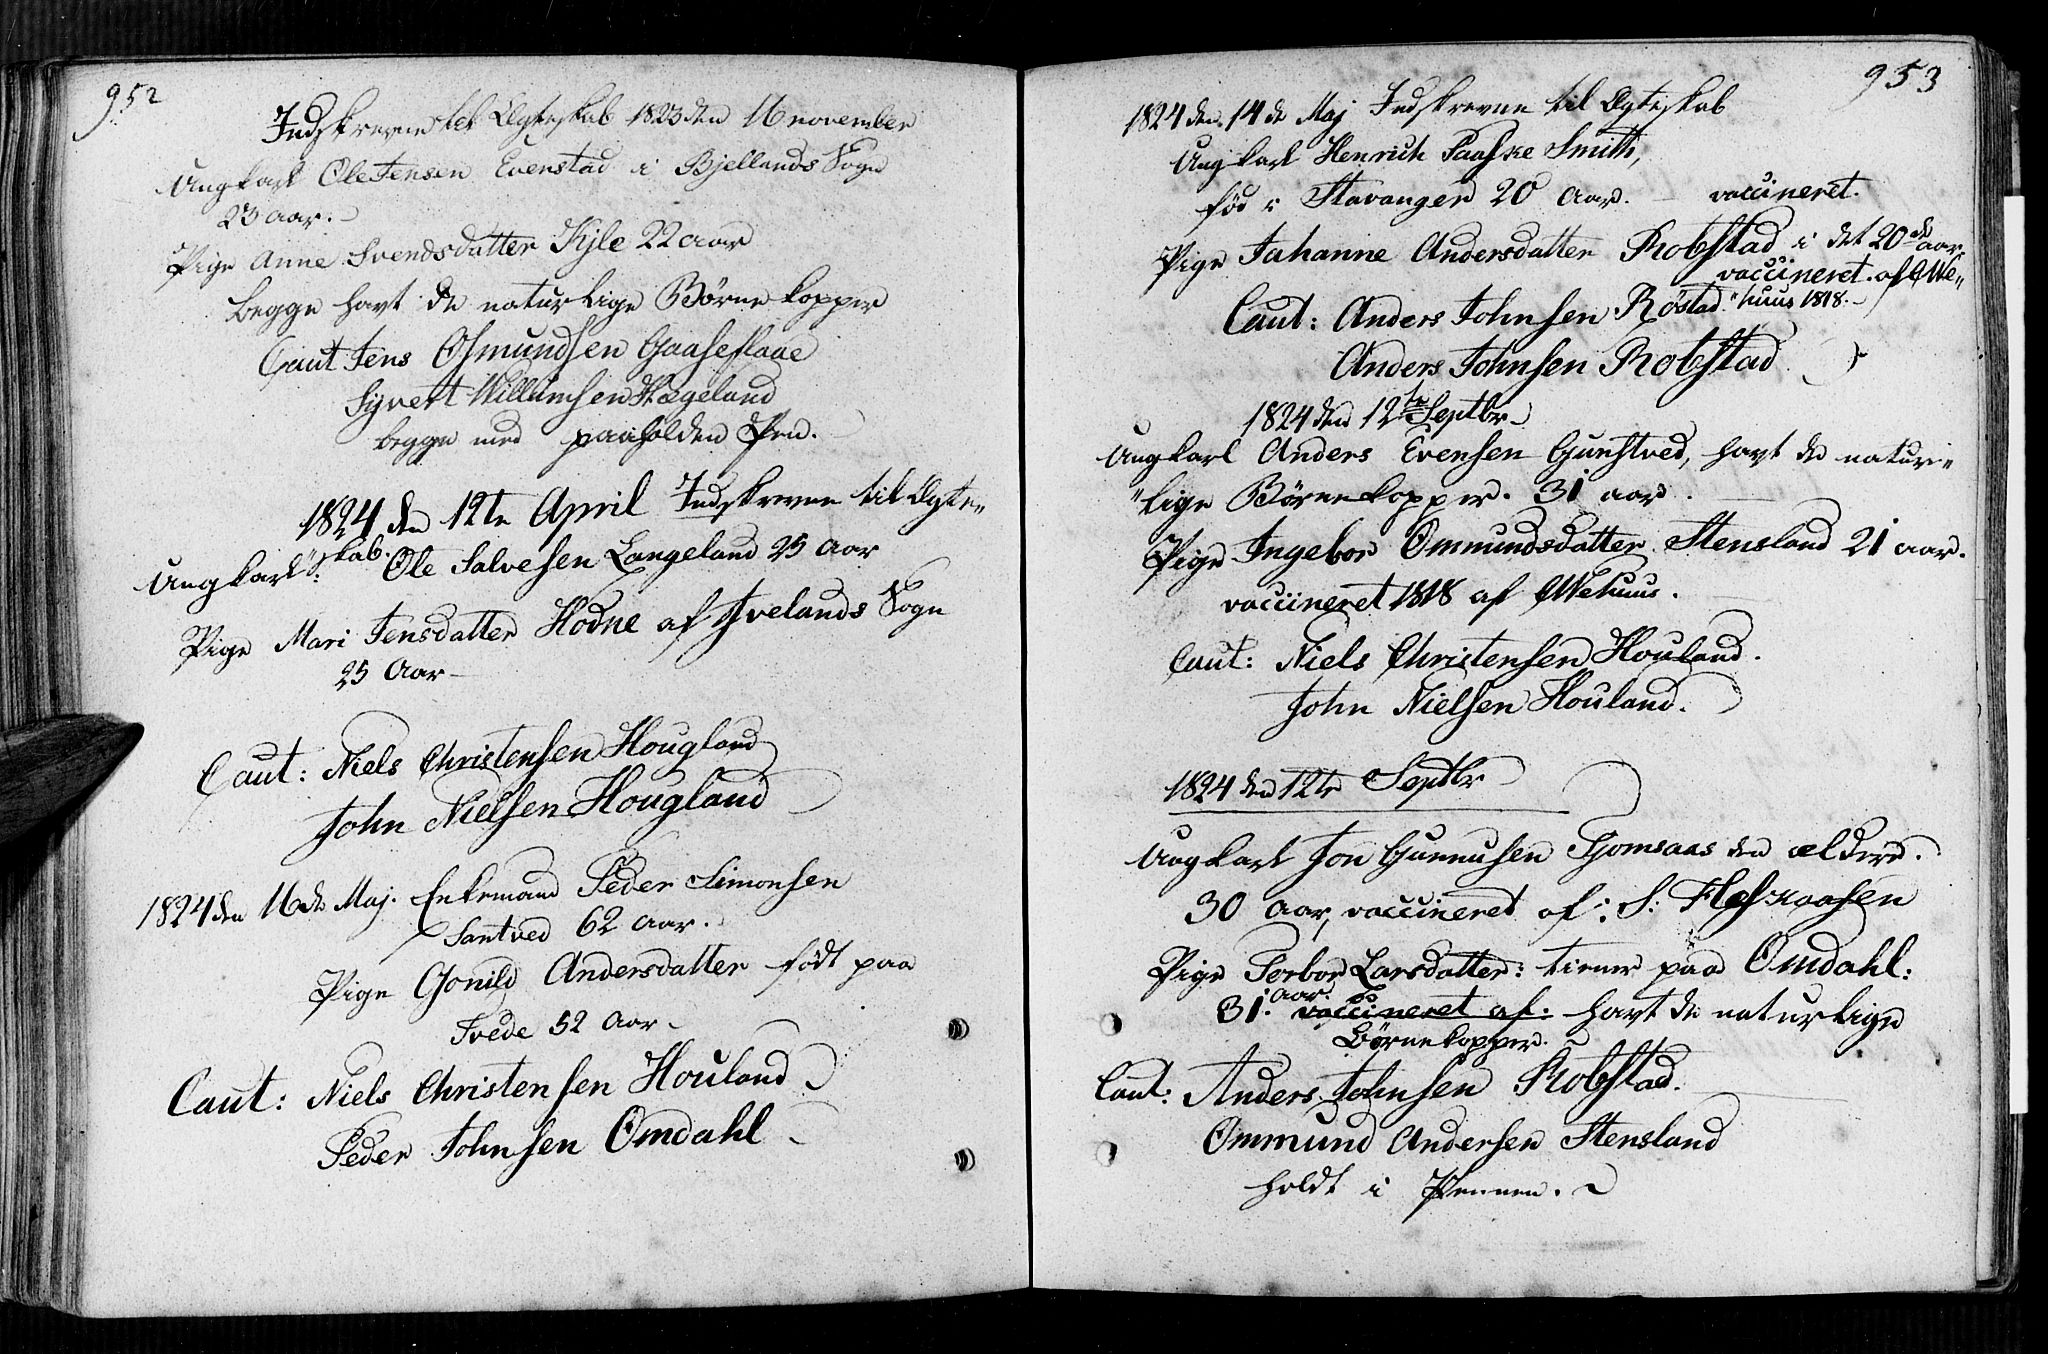 952
Indskrevne til Ægteskab 1823 den 16 november
Ungkarl Ole Jensen Evenstad i Bjellands Sogn
23 aar.
Pige Anne Svendsdatter Kyle 22 aar
begge havt de naturlige Børnekopper
Caut Jens Osmundsen Gaaseflaae
Syvert Willumsen Hægeland
begge med paaholden Pen.
1824 den 12te April Indskrevne til Ægte„
„skab.
Ungkarl: Ole Salvesen Langeland 25 Aar
Pige Mari Jensdatter Hodne af Ivelands Sogn
25 Aar
Caut: Niels Christensen Hougland
John Nielsen Hougland
1824 den 16de Maj. Enkemand Peder Simonsen
Santved 62 aar.
Pige Gonild Andersdatter født paa
Tvede 52 Aar
Caut: Niels Christensen Houland
Peder Johnsen Omdahl
953
1824 den 14de Maj Indskrevne til Ægteskab
Ungkarl Henrich Paaske Smith,
fød i Stavanger 20 Aar. – vaccineret.
Pige Johanne Andersdatter Robstad i det 20de aar,
vaccineret af We„
Caut: Anders Johnsen Röstad „huus 1818.
Anders Johnsen Robstad
1824 den 12te Septbr
Ungkarl Anders Evensen Gunstved, havt de natur„
„lige Børnekopper. 31 aar.
Pige Ingebor Ommundsdatter Stensland 21 aar.
vaccineret 1818 af Wehuus.
Caut: Niels Christensen Houland.
John Nielsen Houland.
1824 den 12te Septbr
Ungkarl Jon Gunnusen Tjomsaas den ældere.
30 aar, vaccineret af: S:
Pige Torbor Larsdatter: tiener paa Omdahl:
31. aar. vaccineret af: havt de naturlige
Børnekopper.
Caut: Anders Johnsen Robstad.
Ommund Andersen Stensland
holdt i Pennen.